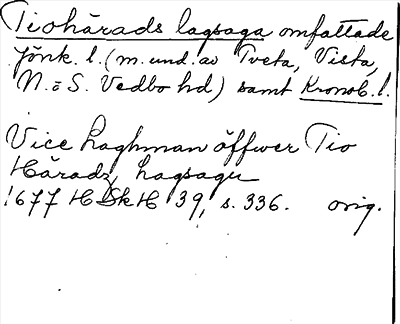 Tiohärads lagsaga omfattade
Jönk. l. (m. und. av Tveta, Vista,
N. o S. Vedbo hd) samt Kronob. l.
Vice Laghman öffwer Tio
Häradz Lagsagu
1677 HSkH 39, s. 336. orig.